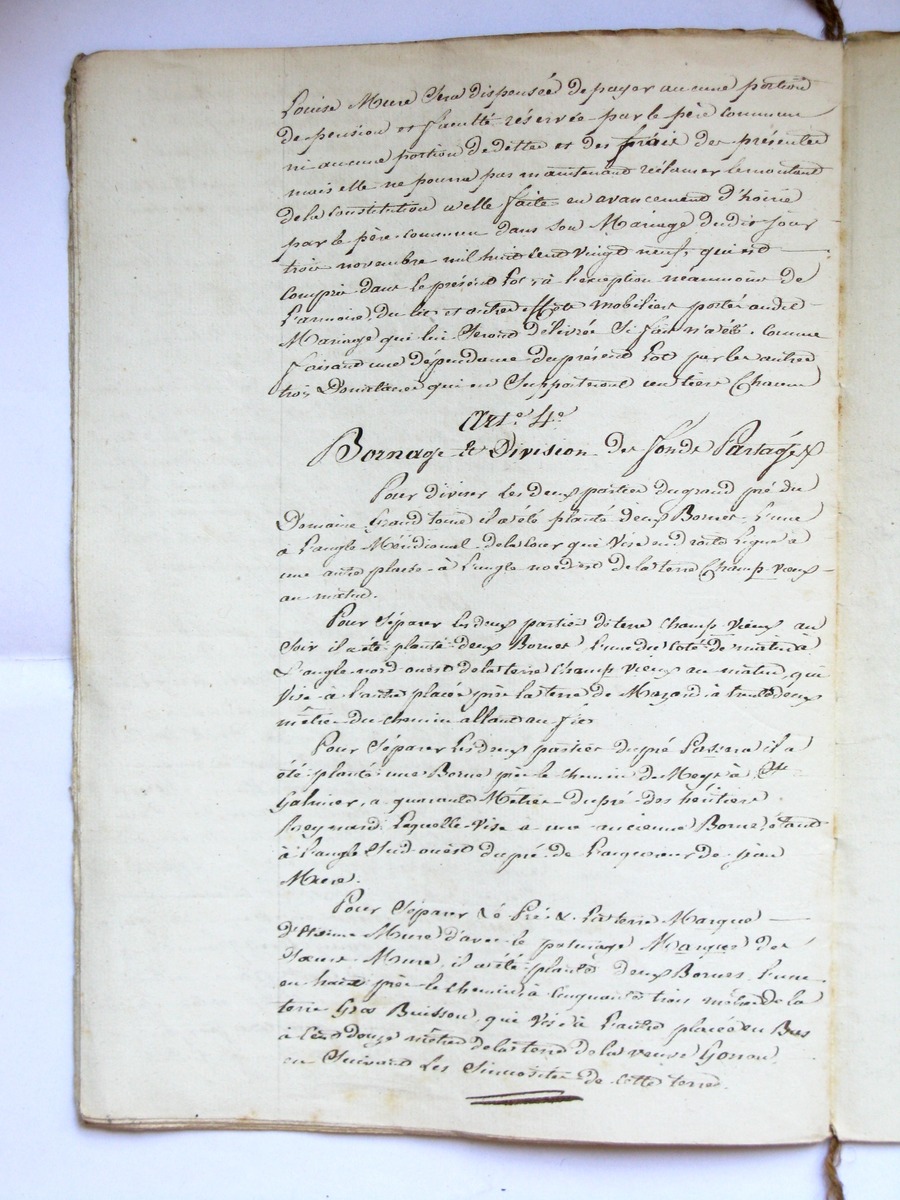 Louise Mure sera dispensée de payer aucune portion
de pension et faculté réservée par le père commun
ni aucune portion de dettes et des frais des présentes
mais elle ne pourra pas maintenant réclamer le montant
de la constitution a elle faite en avancement d'hoirie
par le père commun dans son Mariage dudit jour
trois novembre mil huit cent vingt neuf, qui est
compris dans le présent Lot, à l'exception néanmoins de
L'armoire du lit et autres effets mobiliers portés audit
Mariage qui lui seront délivrés si fait n'a été, comme
faisant une dépendance du présent Lot par les autres
trois Donataires qui en supporteront un tiers Chacun
Art.e 4.e
Bornage et Division des fonds Partagés
Pour diviser les deux parties du grand pré du
Domaine Grand tome il a été planté deux Bornes, L'une
à L'angle Méridional de la cour qui vise en droite Ligne à
une autre placée à L'angle nord est de la terre Champ vieux
au matin.
Pour séparer les deux parties de terre Champ vieux au
soir il a été planté deux Bornes L'une du coté de matin à
L'angle nord ouest de la terre Champ vieux au matin, qui
vise à L'autre placée près la terre de Mazard, à trente deux
mètres du chemin allant au fier
Pour séparer les deux parties du pré il a
été planté une Borne près le chemin de Meys à St
Galmier, a quarante Mètres du pré des héritiers
Laquelle vise a une ancienne Borne étant
à L'angle sud ouest du pré de L'acquéreur de Jean
Mure.
Pour séparer Le Pré & La terre Marque
D'Etienne Mure d'avec le paturage Marques des
sœurs Mure, il a été planté deux Bornes, L'une
en haut près le chemin, à cinquante trois mètres de la
terre Gros Buisson, qui vise à L'autre placée en Bas
à Cent douze mètres de la terre de la veuve
en suivant Les sinuosités de cette terre.